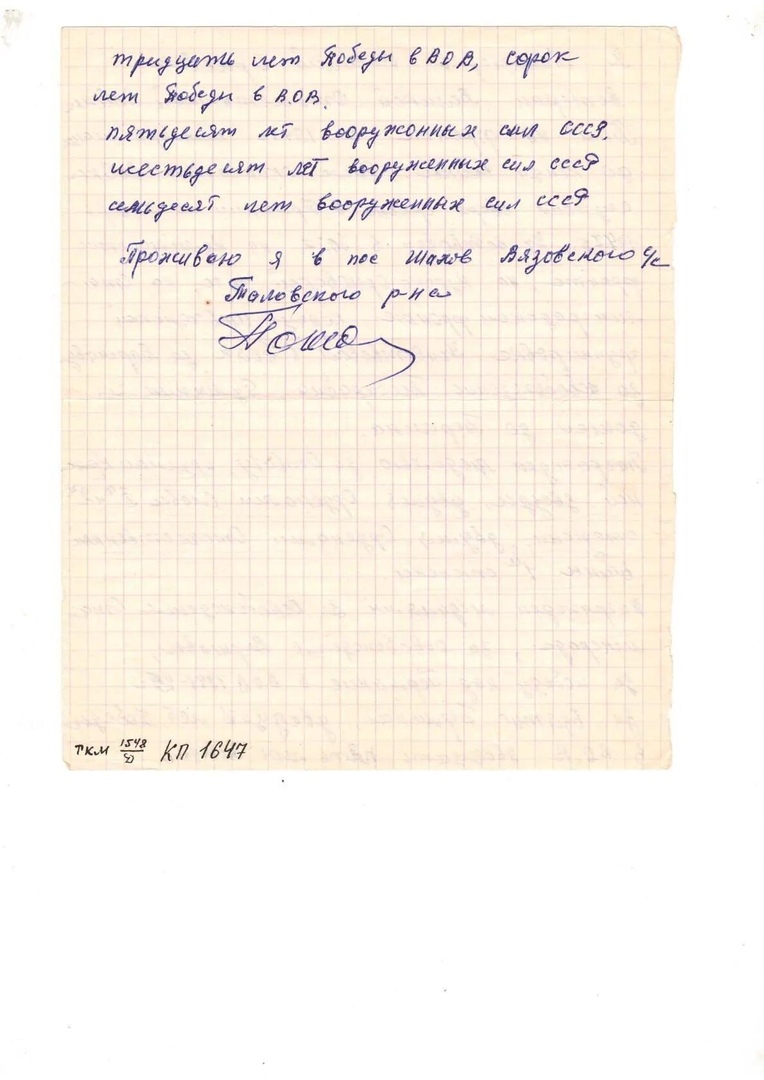 тридцать лет Победы в ВОВ, сорок
лет Победы в В.О.В.
пятьдесят лет вооружонных сил СССР.
шестьдесят лет вооруженных сил СССР
семьдесят лет вооруженных сил СССР
Проживаю я в пос Шахов Вязовского с/с
Таловского р-на
ТКМ 1548/Д КП 1647